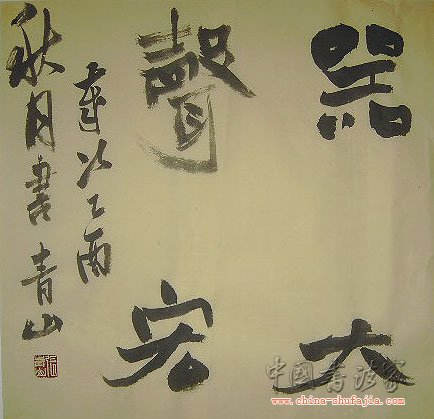 器大
聲宏
歲次乙酉
秋月書青山
中國書法家
www.china-shufajia.com